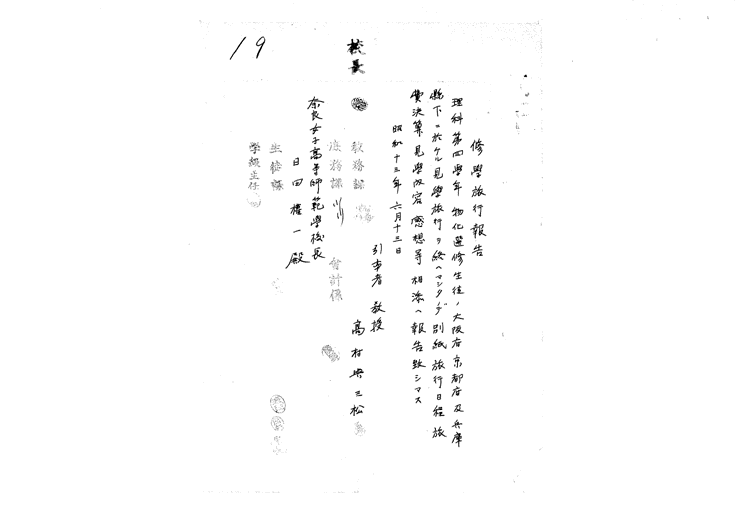 19
校長
修學旅行報告
理科第四學年物化選修生徒ノ大阪府京都府及兵庫
縣下ニ於ケル見學旅行ヲ終ヘマシタノデ別紙旅行日程旅
費決算見學内容感想等相添ヘ報告致シマス
昭和十三年六月十三日
引率者 教授
高村與三松
教務課
庶務課
會計係
奈良女子高等師範學校長
殿
生徒課
學級主任